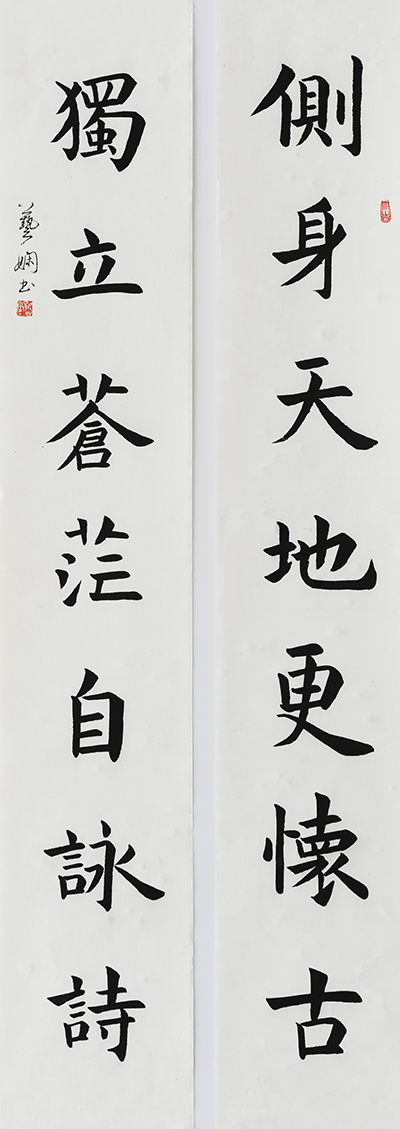 側身天地更懷古
獨立蒼茫自詠詩
藝嫻书